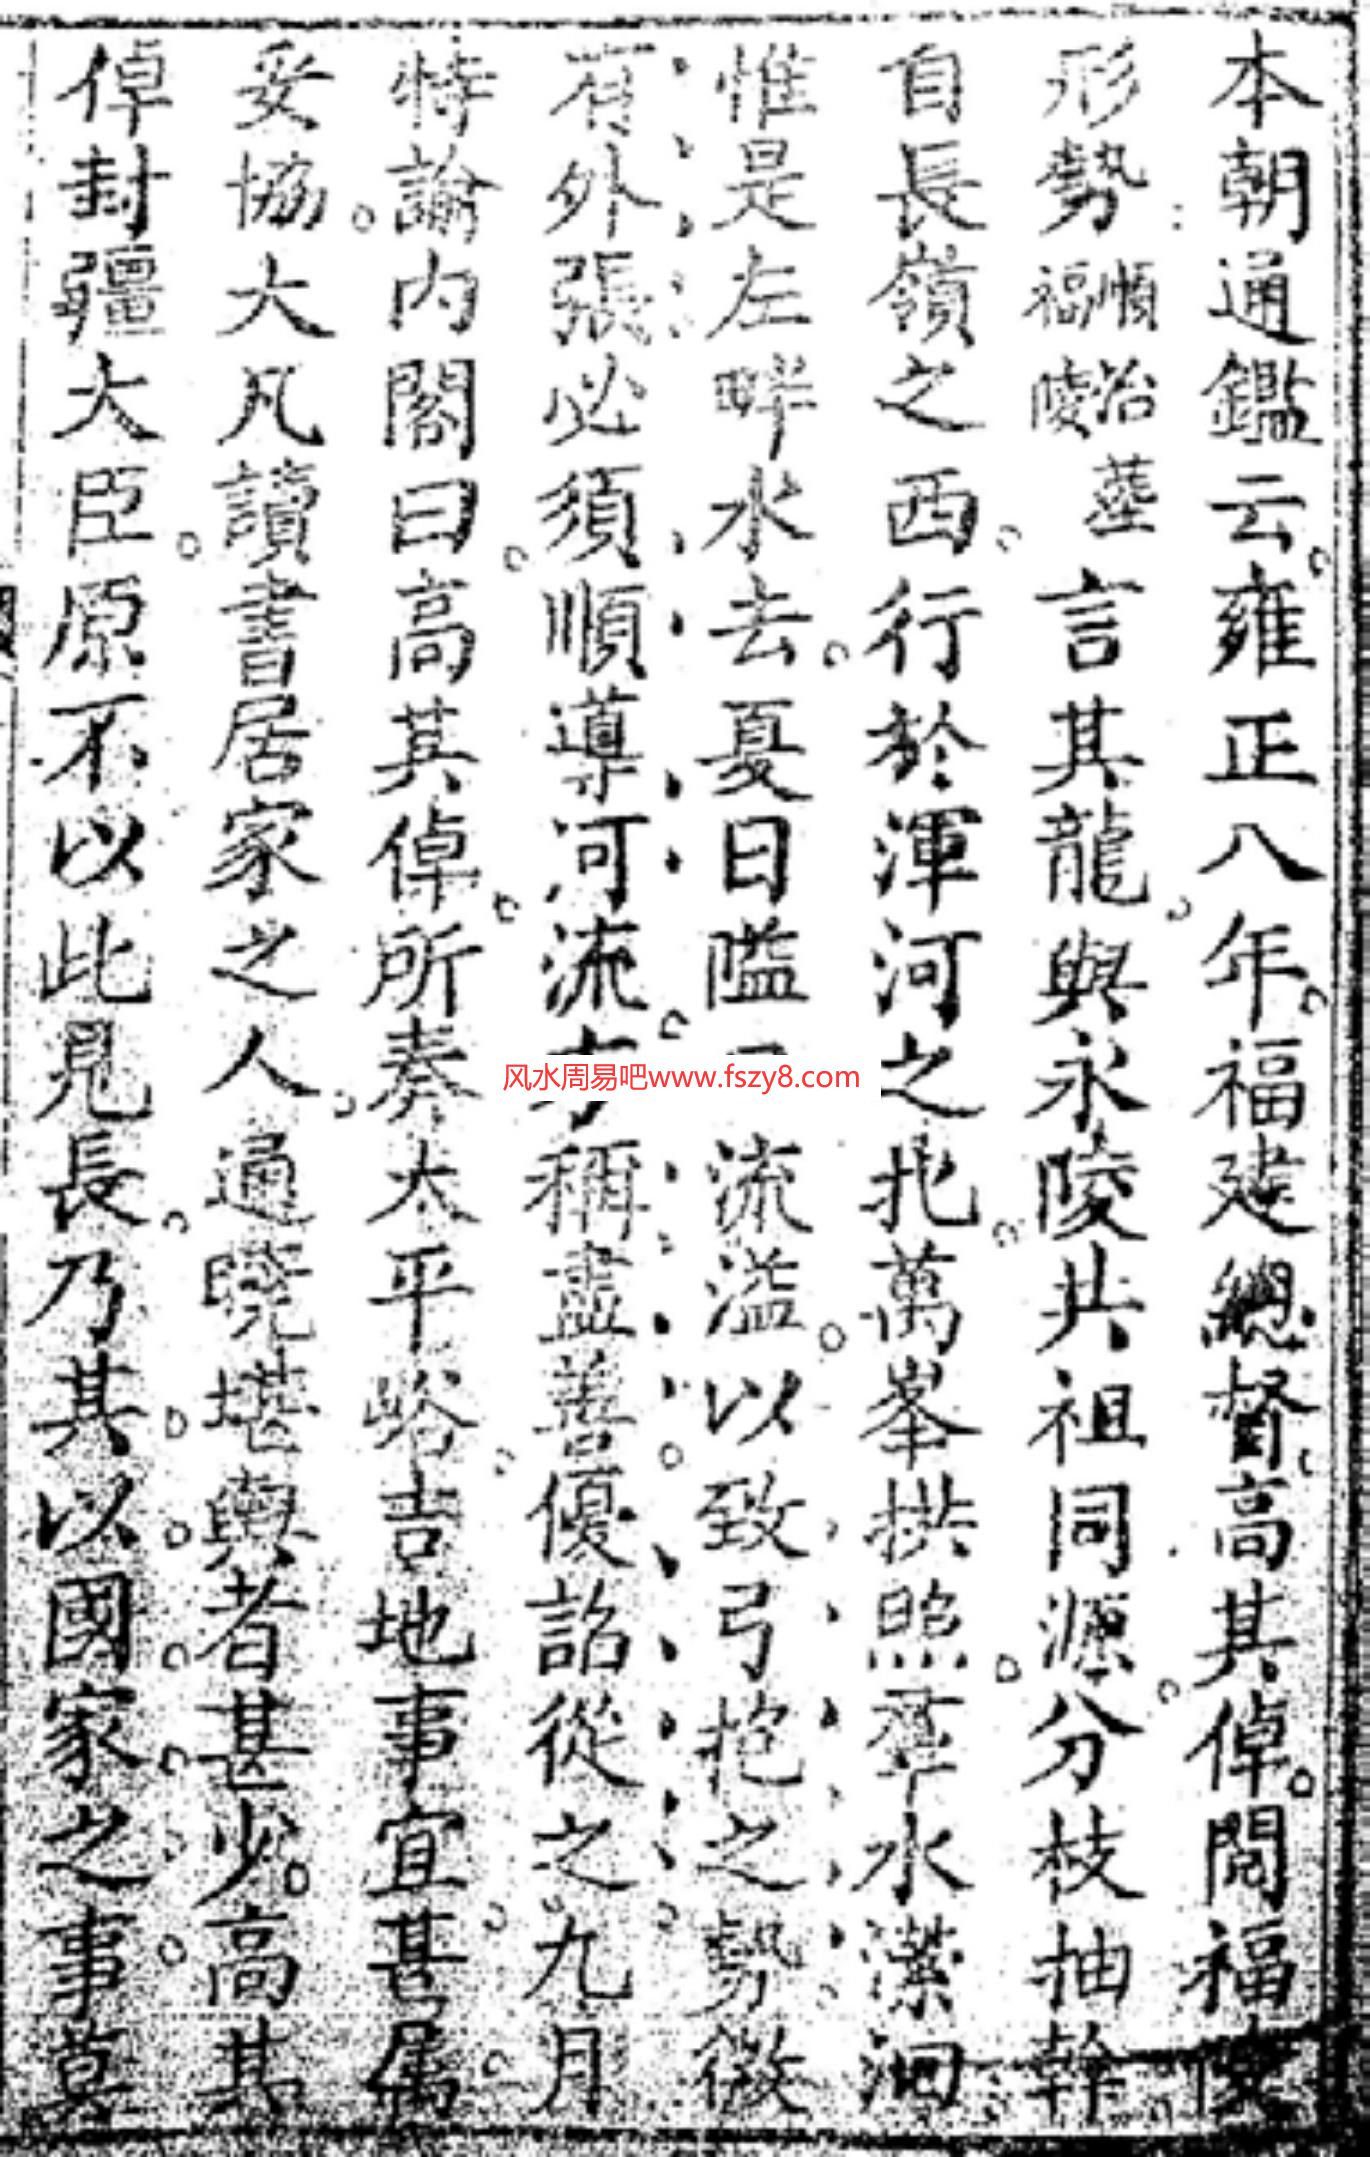 本朝通鑑云雍正八年福建總督高其倬閱福陵
形勢順治葬福陵言其龍與永陵共祖同源分枝抽幹
自長嶺之西行於渾河之北萬峯拱照羣水瀠洄
惟是左畔水去夏日隘 流溢以致弓抱之勢微
有外張必須順導河流 稱盡善優詔從之九月
特諭內閣曰高其倬所奏太平峪吉地事宜甚屬
妥協大凡讀書居家之人通曉堪輿者甚少高其
倬封疆大臣原不以此見長乃其以國家之事莫
风水周易吧www.fszy8.com